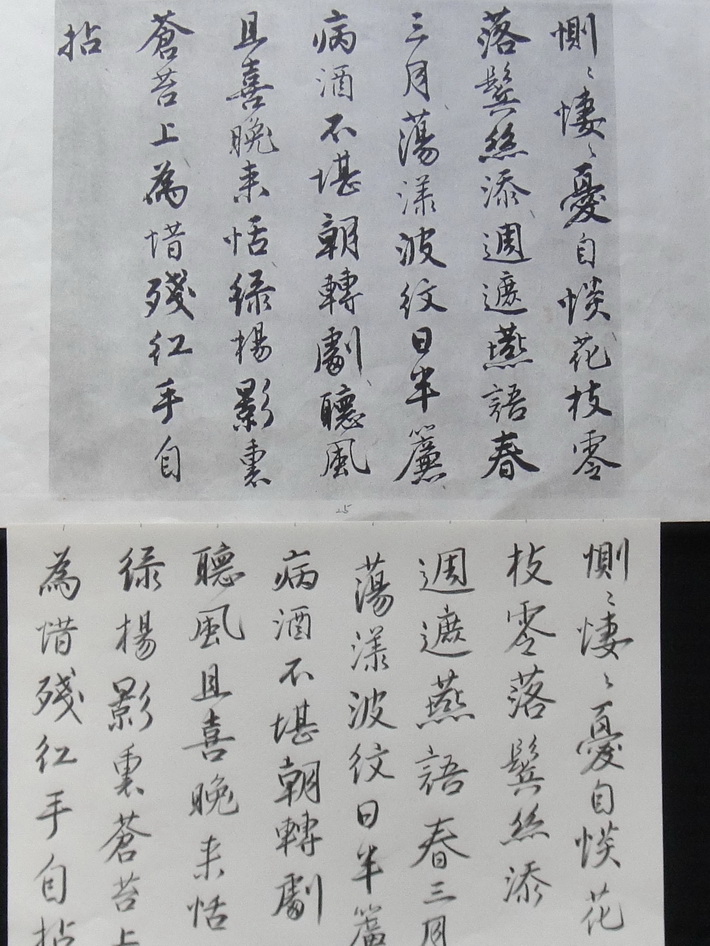 惻〻悽〻憂自惔花枝零
落鬓絲添週遮燕語春
三月蕩漾波紋日半簾
病酒不堪朝轉劇聽風
且喜晚来恬緑楊影裏
蒼苔上為惜殘红手自
拈
25
惻〻悽〻憂自惔花
枝零落鬓絲添
週遮燕語春三月
蕩漾波紋日半簾
病酒不堪朝轉劇
聽風且喜晚来恬
緑楊影裏蒼苔上
為惜殘红手自拈